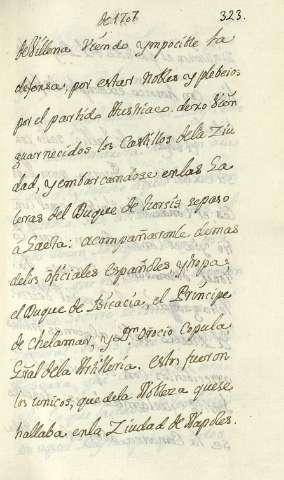 de 1707 323.
de Villena viendo ymposible la
defensa, por estar Nobles y plebeios
por el partido Austriaco. dexo bien
guarnecidos los Castillos de la Ziu
dad, y embarcandose en las Ga
leras del Duque de Tursis se paso
à Gaeta: acompañaronle demas
de los oficiales españoles y tropa;
el Duque de Bisacia, el Principe
de Chelamar, y Dn. Orocio Copula
Gñal de la Artilloria. estos fueron
los unicos, que de la Nobleza que se
hallaba en la Ziudad de Napoles.